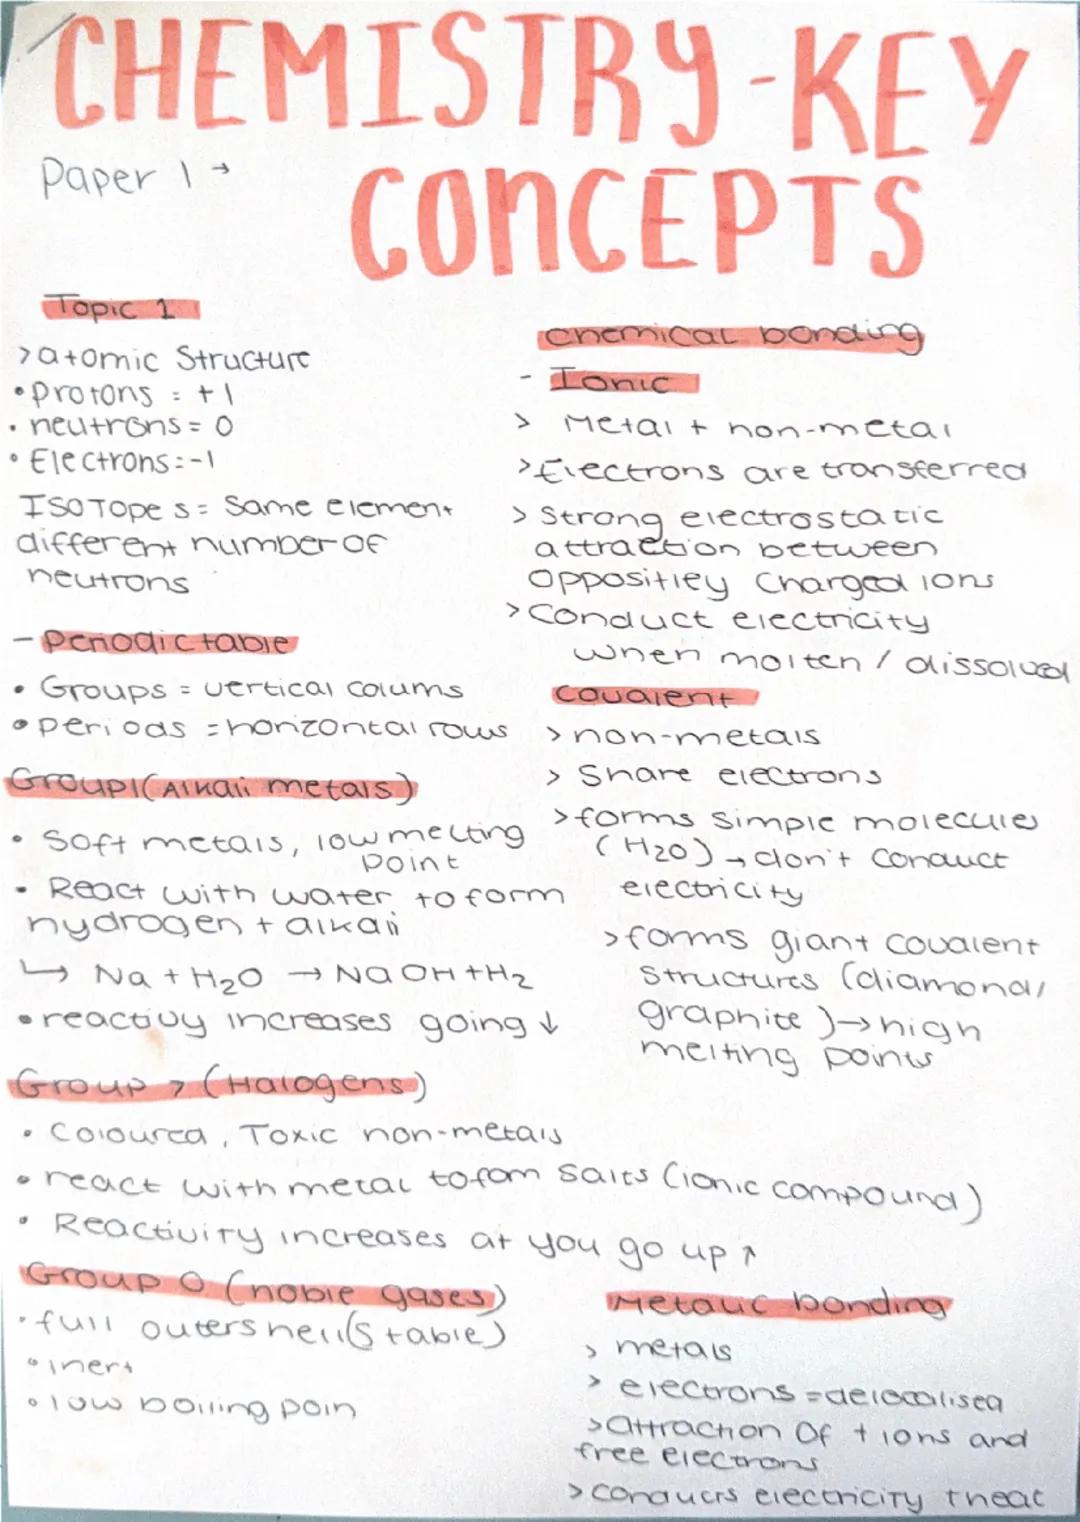 CHEMISTRY-KEY
CONCEPTS
Paper 1 →
Topic 1
>atomic Structure
• Protons = +1
• neutrons = 0
• Electrons = -1
ISOTopes = Same element
different number of
neutrons
- Periodic table
• Groups = vertical colums
• periods = horizontal rows
Group1(Alkali metals)
• Soft metals, low melting
point
• React with water to form
hydrogen + alkali
↳ Na + H2O → NaOH + H2
• reactivy increases going ↓
Group 7 (Halogens)
• Coloured, Toxic non-metals
• react with metal to fom Salts (ionic compound)
• Reactivity increases at you go up ↗
Group 0 (noble gases)
• full outer shell(Stable)
• inert
• low boiling poin
Chemical bonding
- Ionic
> Metal + non-metal
> Electrons are transferred
> Strong electrostatic
attraction between
Oppositley Charged ions
> Conduct electricity
when molten / dissolved
Covalent
> non-metals
> Share electrons
> forms simple molecules
(H2O) → don't conduct
electricity
> forms giant covalent
structures (diamond/
graphite) → high
melting points
Metallic bonding
> metals
> electrons = delocalised
> attraction Of + ions and
free electrons
> conducts electricity + heat